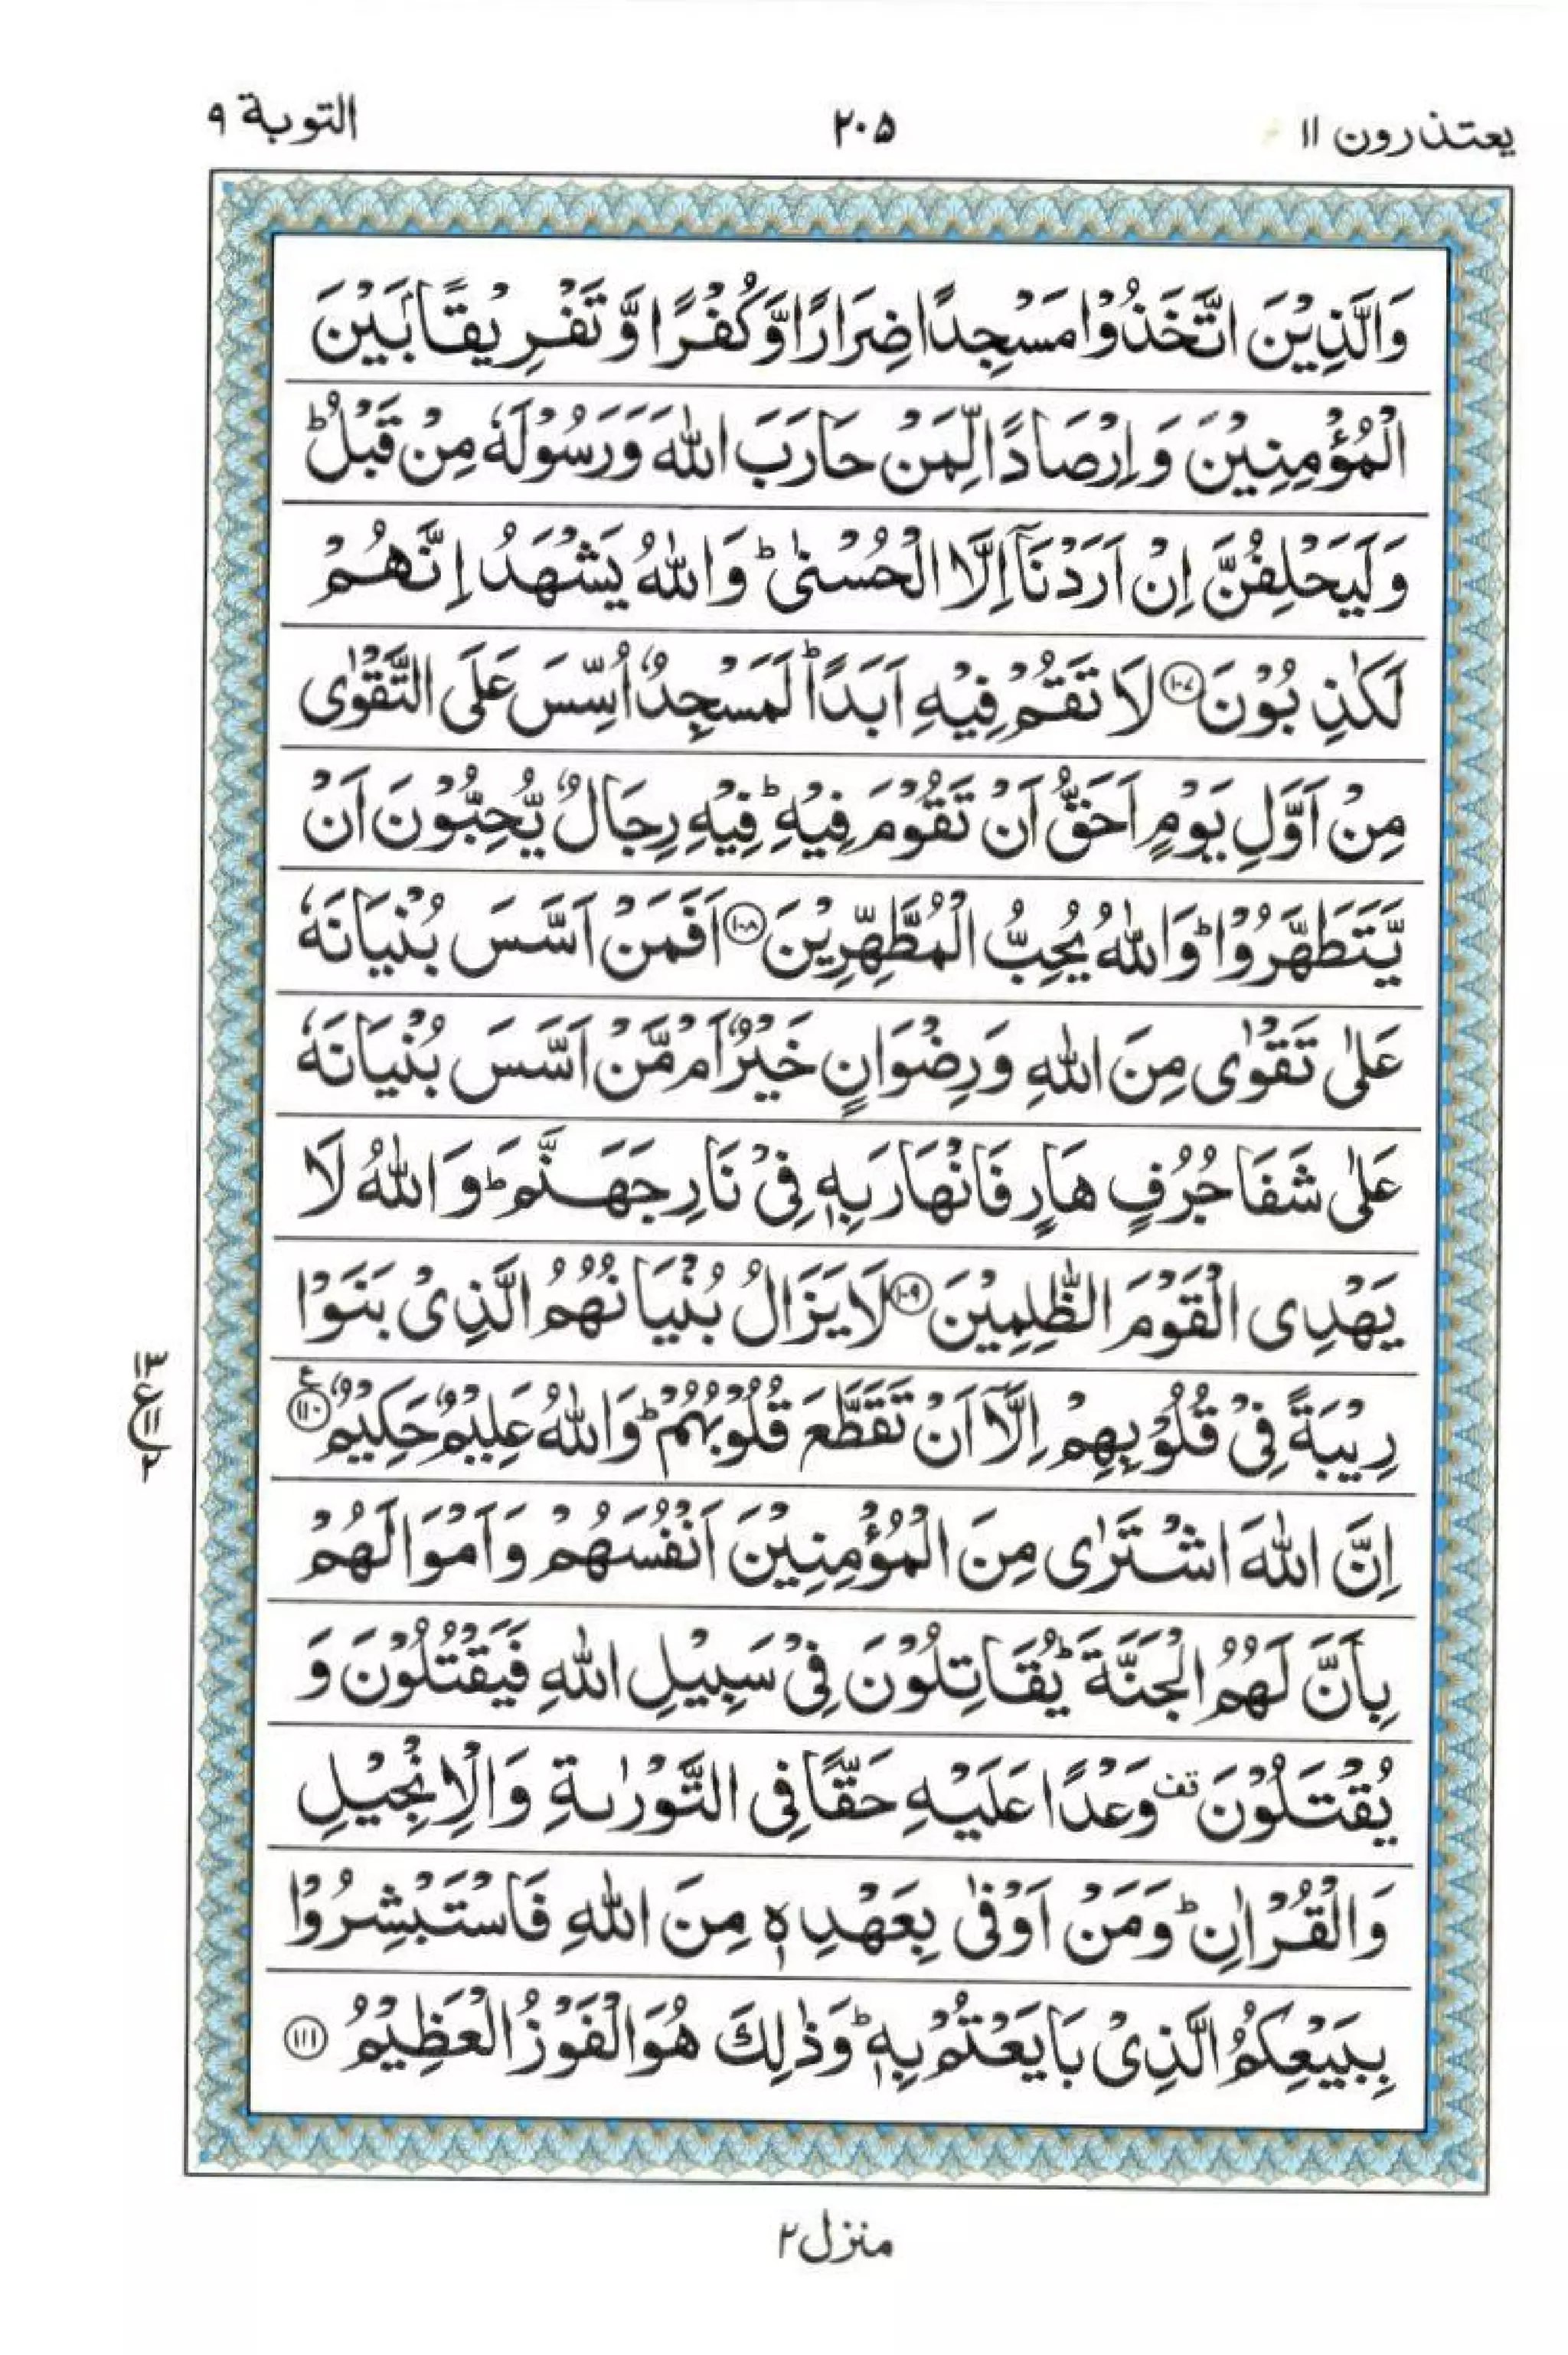 یعتذرون ۱۱
۲۰۵
التوبة ۹
وَالَّذِيْنَ اتَّخَذُوْا مَسْجِدًا ضِرَارًا وَّكُفْرًا وَّ تَفْرِيْقًۢا بَيْنَ
الْمُؤْمِنِيْنَ وَ اِرْصَادًا لِّمَنْ حَارَبَ اللّٰهَ وَرَسُوْلَهٗ مِنْ قَبْلُ ؕ
وَلَيَحْلِفُنَّ اِنْ اَرَدْنَاۤ اِلَّا الْحُسْنٰى ؕ وَاللّٰهُ يَشْهَدُ اِنَّهُمْ
لَكٰذِبُوْنَ ﴿۱۰۷﴾ لَا تَقُمْ فِيْهِ اَبَدًا ؕ لَمَسْجِدٌ اُسِّسَ عَلَى التَّقْوٰى
مِنْ اَوَّلِ يَوْمٍ اَحَقُّ اَنْ تَقُوْمَ فِيْهِ ؕ فِيْهِ رِجَالٌ يُّحِبُّوْنَ اَنْ
يَّتَطَهَّرُوْا ؕ وَاللّٰهُ يُحِبُّ الْمُطَّهِّرِيْنَ ﴿۱۰۸﴾ اَفَمَنْ اَسَّسَ بُنْيَانَهٗ
عَلٰى تَقْوٰى مِنَ اللّٰهِ وَرِضْوَانٍ خَيْرٌ اَمْ مَّنْ اَسَّسَ بُنْيَانَهٗ
عَلٰى شَفَا جُرُفٍ هَارٍ فَانْهَارَ بِهٖ فِيْ نَارِ جَهَنَّمَ ؕ وَاللّٰهُ لَا
يَهْدِى الْقَوْمَ الظّٰلِمِيْنَ ﴿۱۰۹﴾ لَا يَزَالُ بُنْيَانُهُمُ الَّذِيْ بَنَوْا
رِيْبَةً فِيْ قُلُوْبِهِمْ اِلَّاۤ اَنْ تَقَطَّعَ قُلُوْبُهُمْ ؕ وَاللّٰهُ عَلِيْمٌ حَكِيْمٌ ﴿۱۱۰﴾ ع
۱۳
ع ۱۱
۲
اِنَّ اللّٰهَ اشْتَرٰى مِنَ الْمُؤْمِنِيْنَ اَنْفُسَهُمْ وَاَمْوَالَهُمْ
بِاَنَّ لَهُمُ الْجَنَّةَ ؕ يُقَاتِلُوْنَ فِيْ سَبِيْلِ اللّٰهِ فَيَقْتُلُوْنَ وَ
يُقْتَلُوْنَ قف وَعْدًا عَلَيْهِ حَقًّا فِى التَّوْرٰىةِ وَالْاِنْجِيْلِ
وَالْقُرْاٰنِ ؕ وَمَنْ اَوْفٰى بِعَهْدِهٖ مِنَ اللّٰهِ فَاسْتَبْشِرُوْا
بِبَيْعِكُمُ الَّذِيْ بَايَعْتُمْ بِهٖ ؕ وَذٰلِكَ هُوَ الْفَوْزُ الْعَظِيْمُ ﴿۱۱۱﴾
منزل ۲